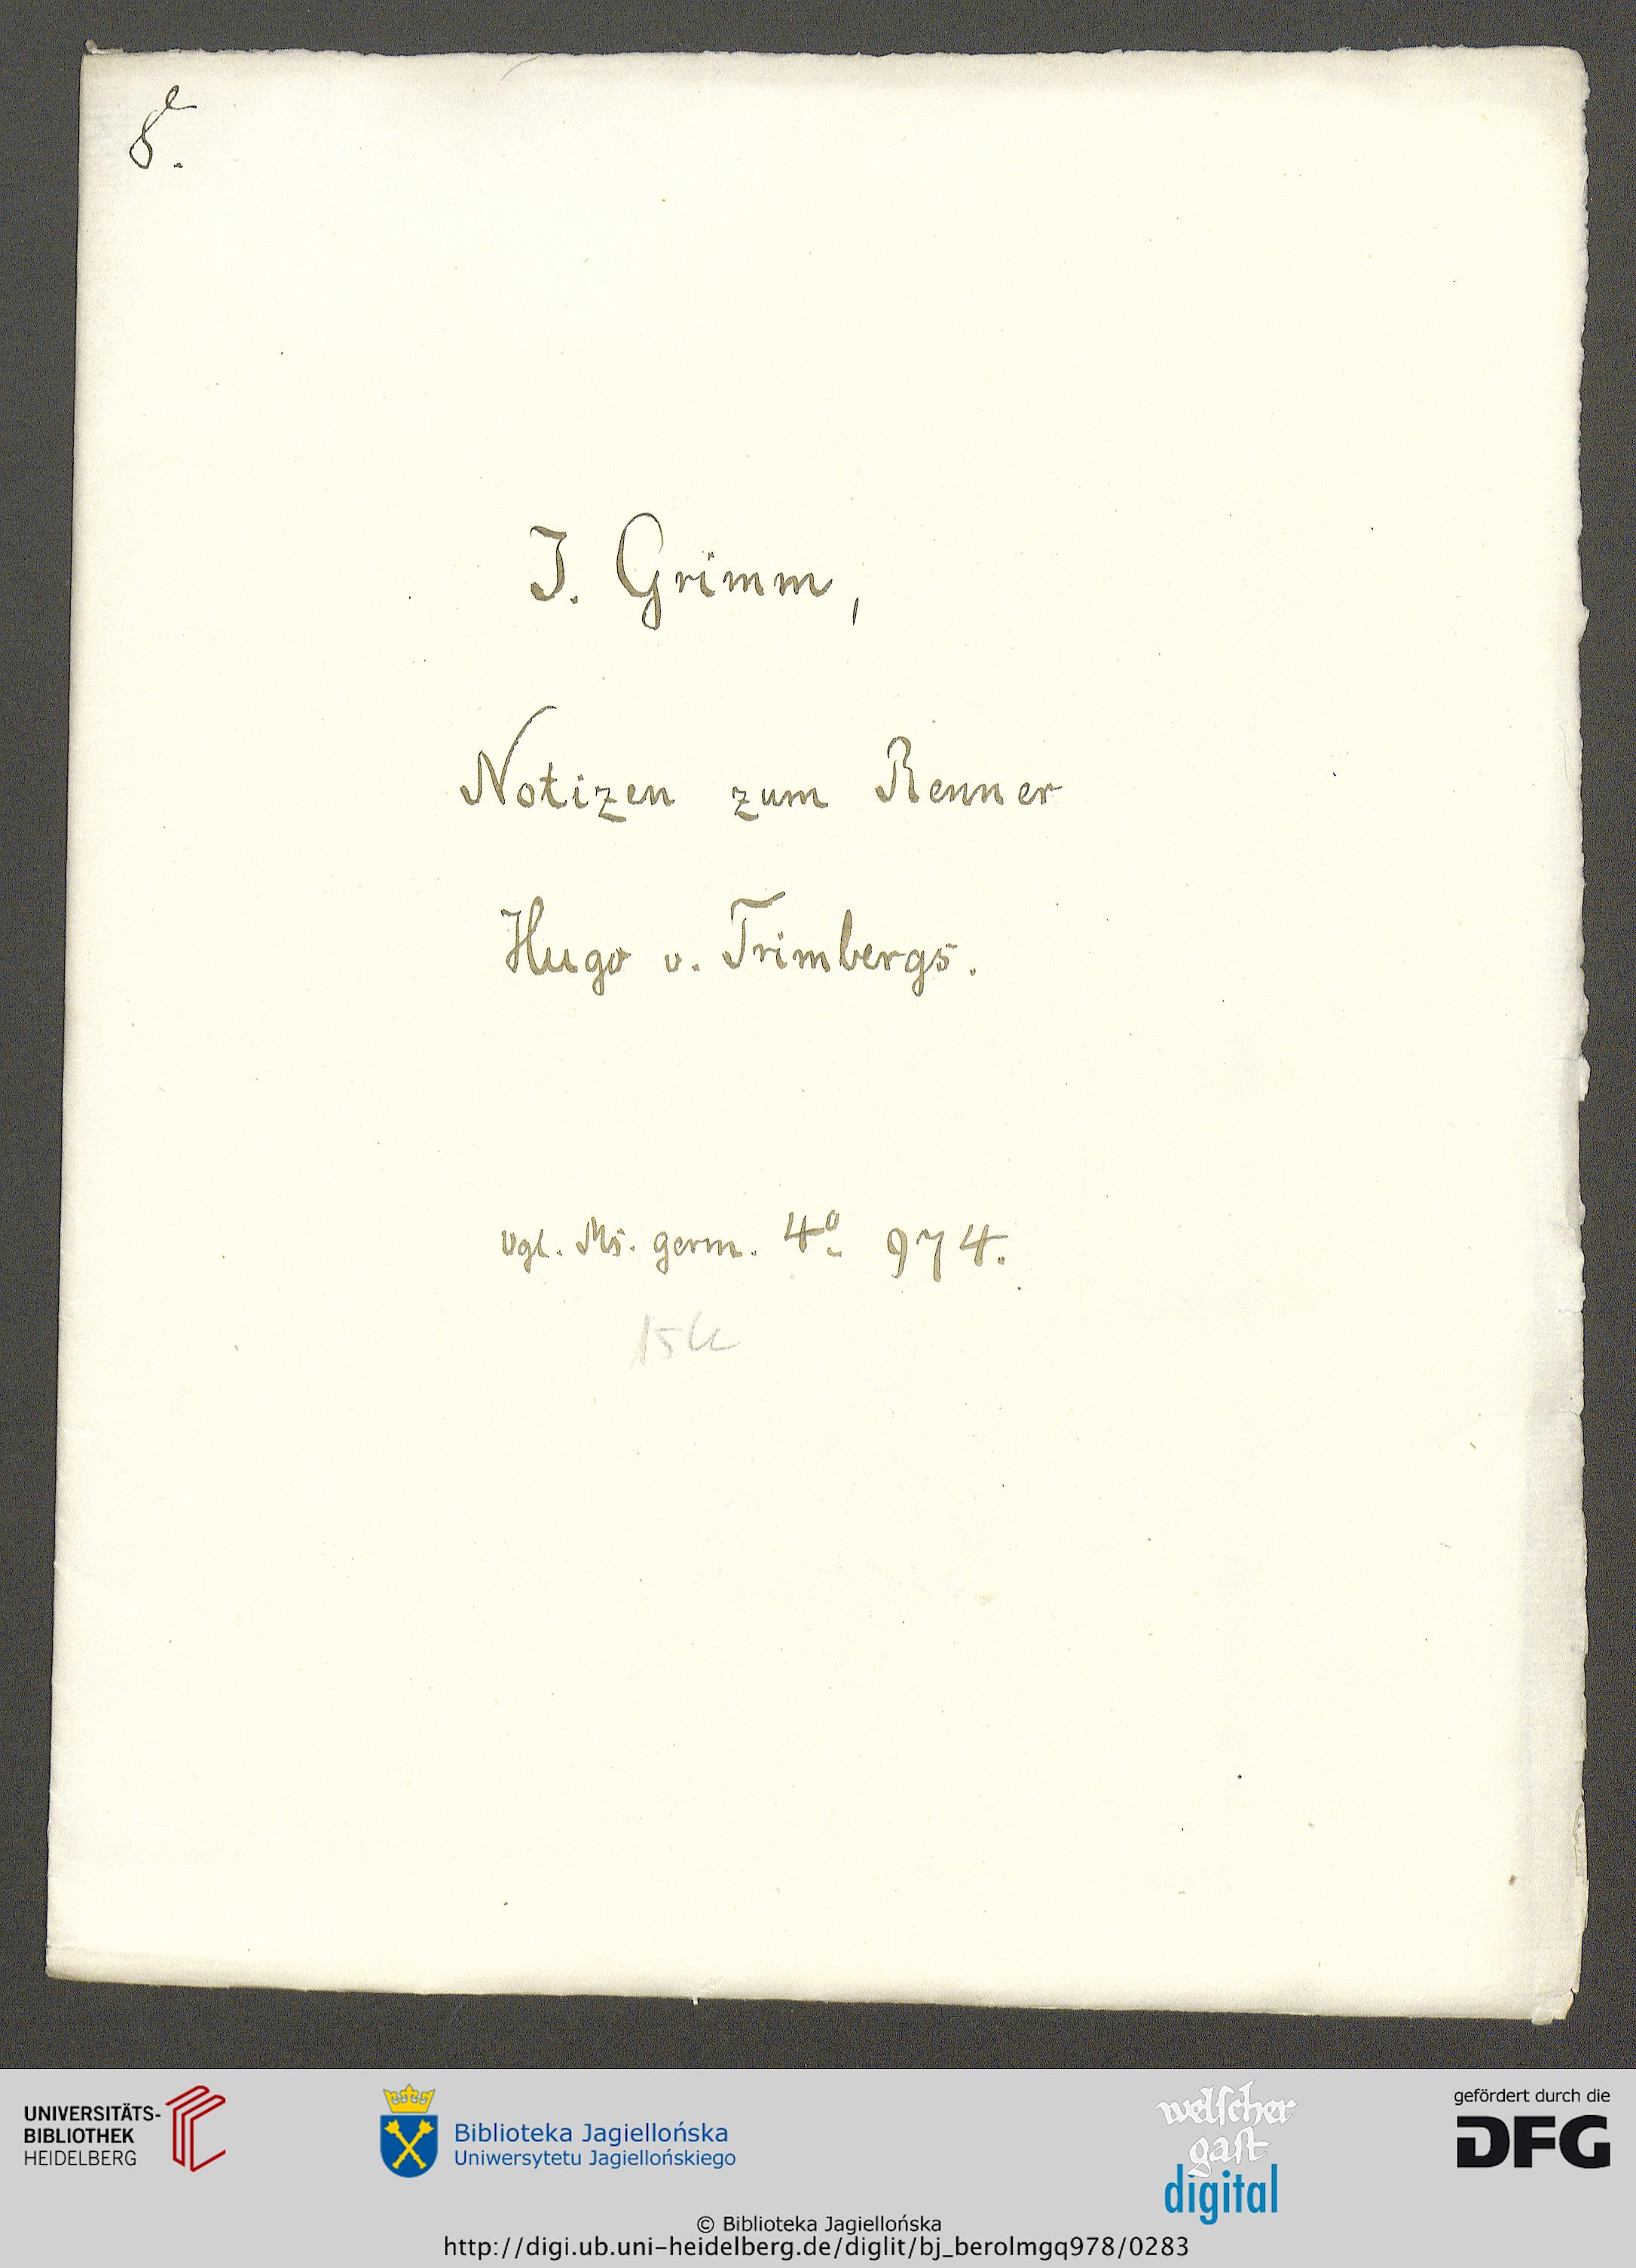 8.
J. Grimm,
Notizen zum Renner
Hugo v. Trimbergs.
vgl. Ms. germ. 4o 974.
UNIVERSITÄTS-
BIBLIOTHEK
HEIDELBERG
Biblioteka Jagiellońska
Uniwersytetu Jagiellońskiego
welſcher
gaſt
digital
gefördert durch die
DFG
© Biblioteka Jagiellońska
http://digi.ub.uni-heidelberg.de/diglit/bj_berolmgq978/0283